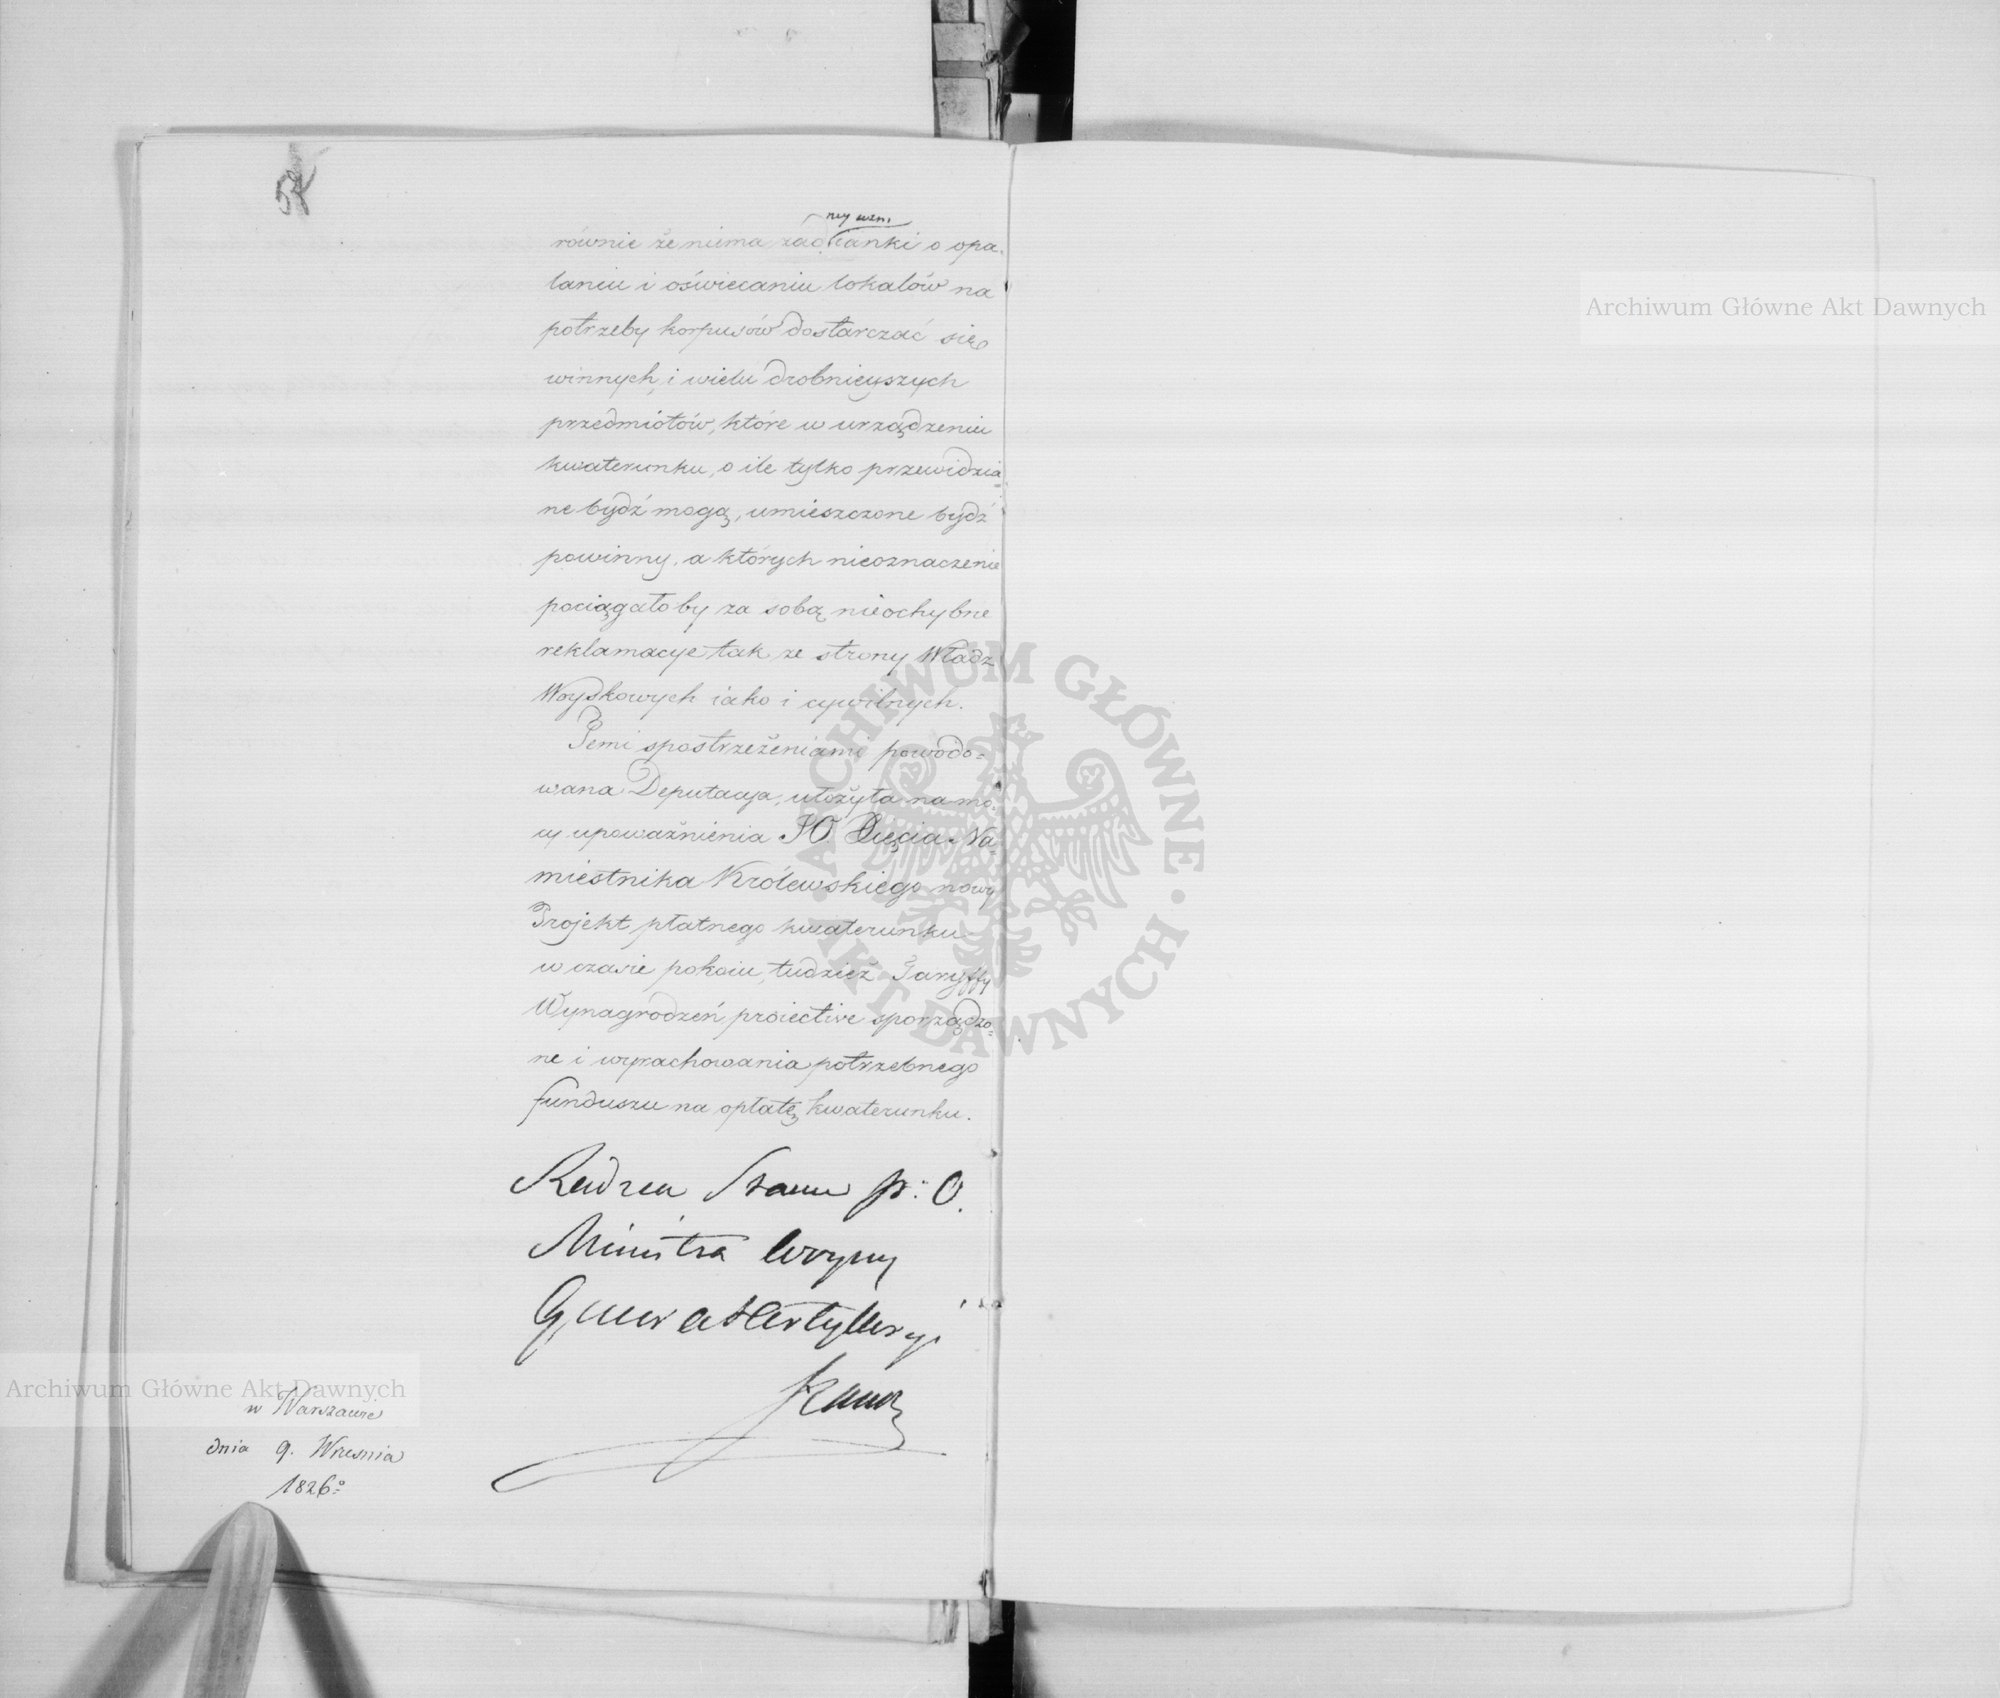 równie że niema żadney wzmianki o opa-
laniu i oświecaniu lokalów na
potrzeby korpusów dostarczać się
winnych, i wielu drobnieyszych
przedmiotów, które w urządzeniu
kwaterunku, o ile tylko przewidzia-
ne bydź mogą, umieszczone bydź
powinny, a których nieoznaczenie
pociągałoby za sobą nieochybne
reklamacye tak ze strony Władz
Woyskowych iako i cywilnych.
Temi spostrzeżeniami powodo-
wana Deputacya, ułożyła na mo-
cy upoważnienia JO. Xięcia Na-
miestnika Królewskiego nowy
Projekt płatnego kwaterunku
w czasie pokoiu, tudzież Taryffy
Wynagrodzeń proiective sporządzo-
ne i wyrachowania potrzebnego
funduszu na opłatę kwaterunku.
Radzca Stanu p: O.
Ministra Woyny
Generał Artylleryi
w Warszawie
dnia 9. Wrzesnia
1826o
Archiwum Główne Akt Dawnych
Archiwum Główne Akt Dawnych
ARCHIWUM GŁÓWNE AKT DAWNYCH